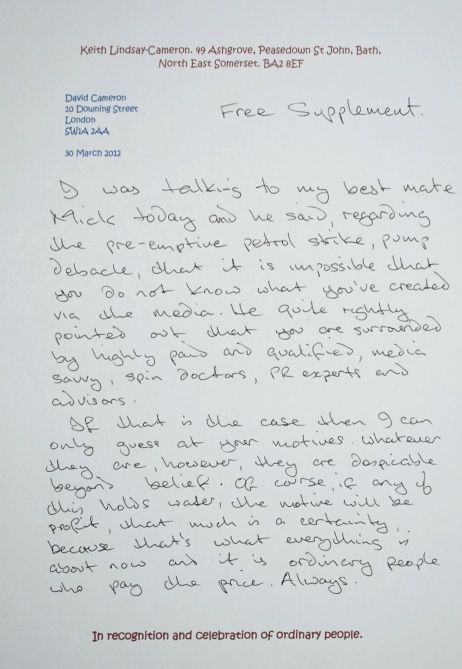 Keith Lindsay-Cameron. 49 Ashgrove, Peasedown St John, Bath,
North East Somerset. BA2 8EF
David Cameron
10 Downing Street
London
SW1A 2AA
30 March 2012
Free Supplement.
I was talking to my best mate
Mick today and he said, regarding
the pre-emptive petrol strike, pump
debacle, that it is impossible that
you do not know what you've created
via the media. He quite rightly
pointed out that you are surrounded
by highly paid and qualified, media
savvy, spin doctors, PR experts and
advisors.
If that is the case then I can
only guess at your motives. Whatever
they are, however, they are despicable
beyond belief. Of course, if any of
this holds water, the motive will be
profit, that much is a certainty,
because that's what everything is
about now and it is ordinary people
who pay the price. Always.
In recognition and celebration of ordinary people.